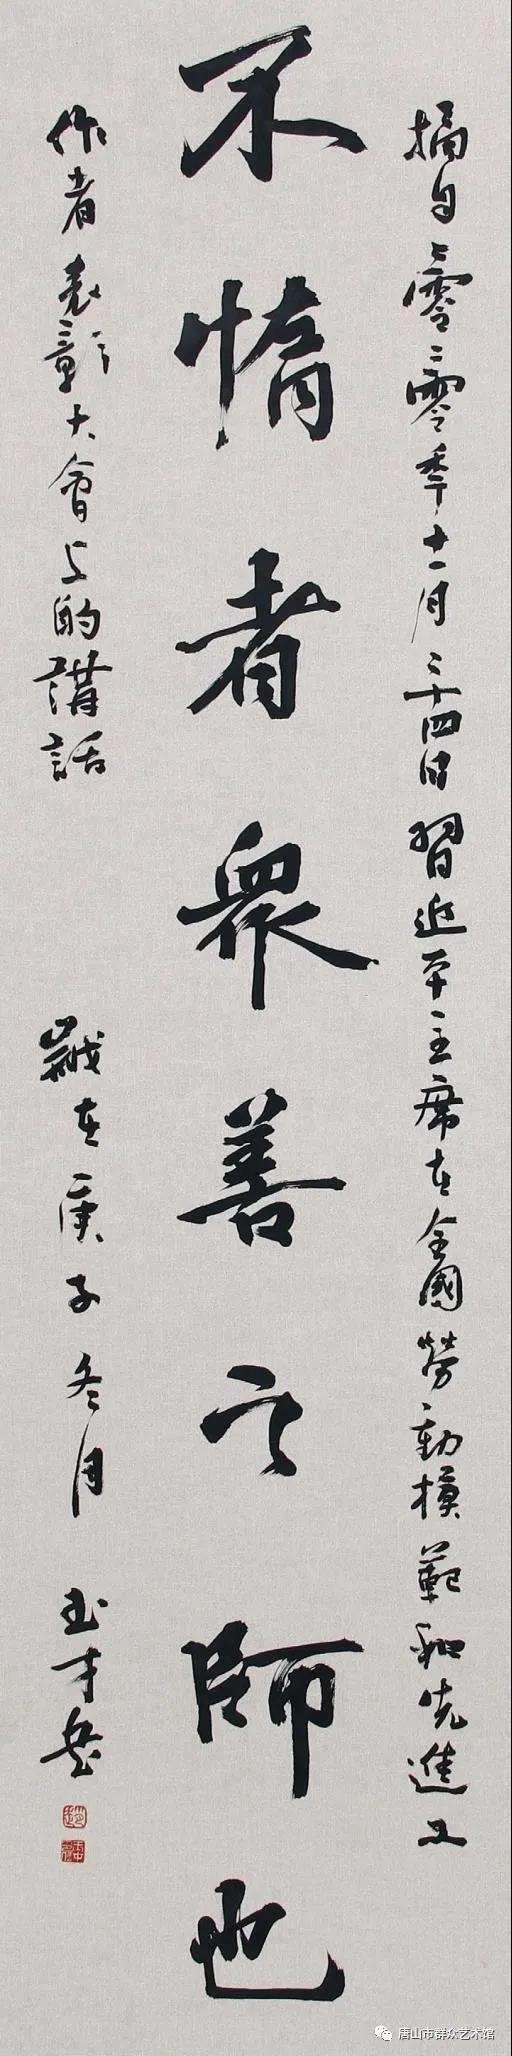 摘自二零二零年十一月二十四日習近平主席在全國勞動模範和先進工
不惰者衆善之師也
作者表彰大會上的講話 歲在庚子冬月 玉才書
唐山市群众艺术馆